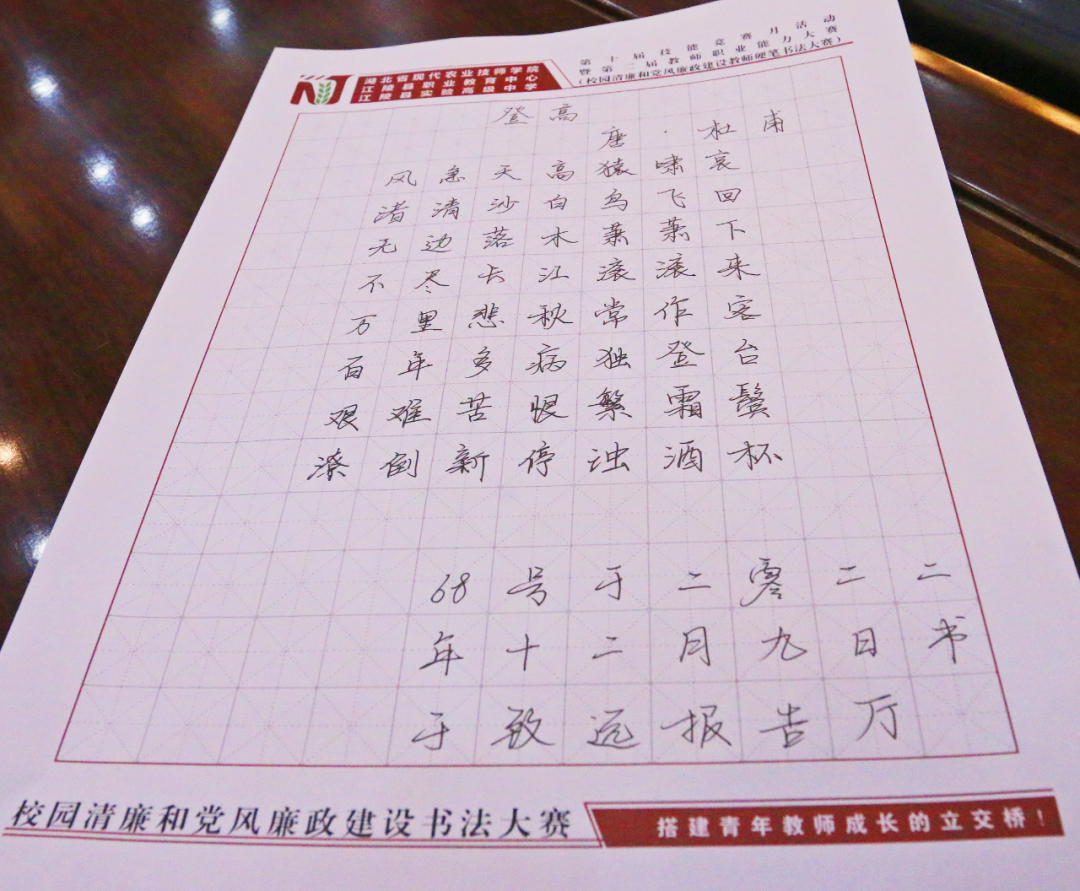 湖北省现代农业技师学院
江陵县职业教育中心
江陵县实验高级中学
第十届技能竞赛月活动
暨第二届教师职业能力大赛
(校园清廉和党风廉政建设教师硬笔书法大赛)
登高
唐·杜甫
风急天高猿啸哀
渚清沙白鸟飞回
无边落木萧萧下
不尽长江滚滚来
万里悲秋常作客
百年多病独登台
艰难苦恨繁霜鬓
潦倒新停浊酒杯
68号于二零二二
年十二月九日书
于致远报告厅
校园清廉和党风廉政建设书法大赛
搭建青年教师成长的立交桥!